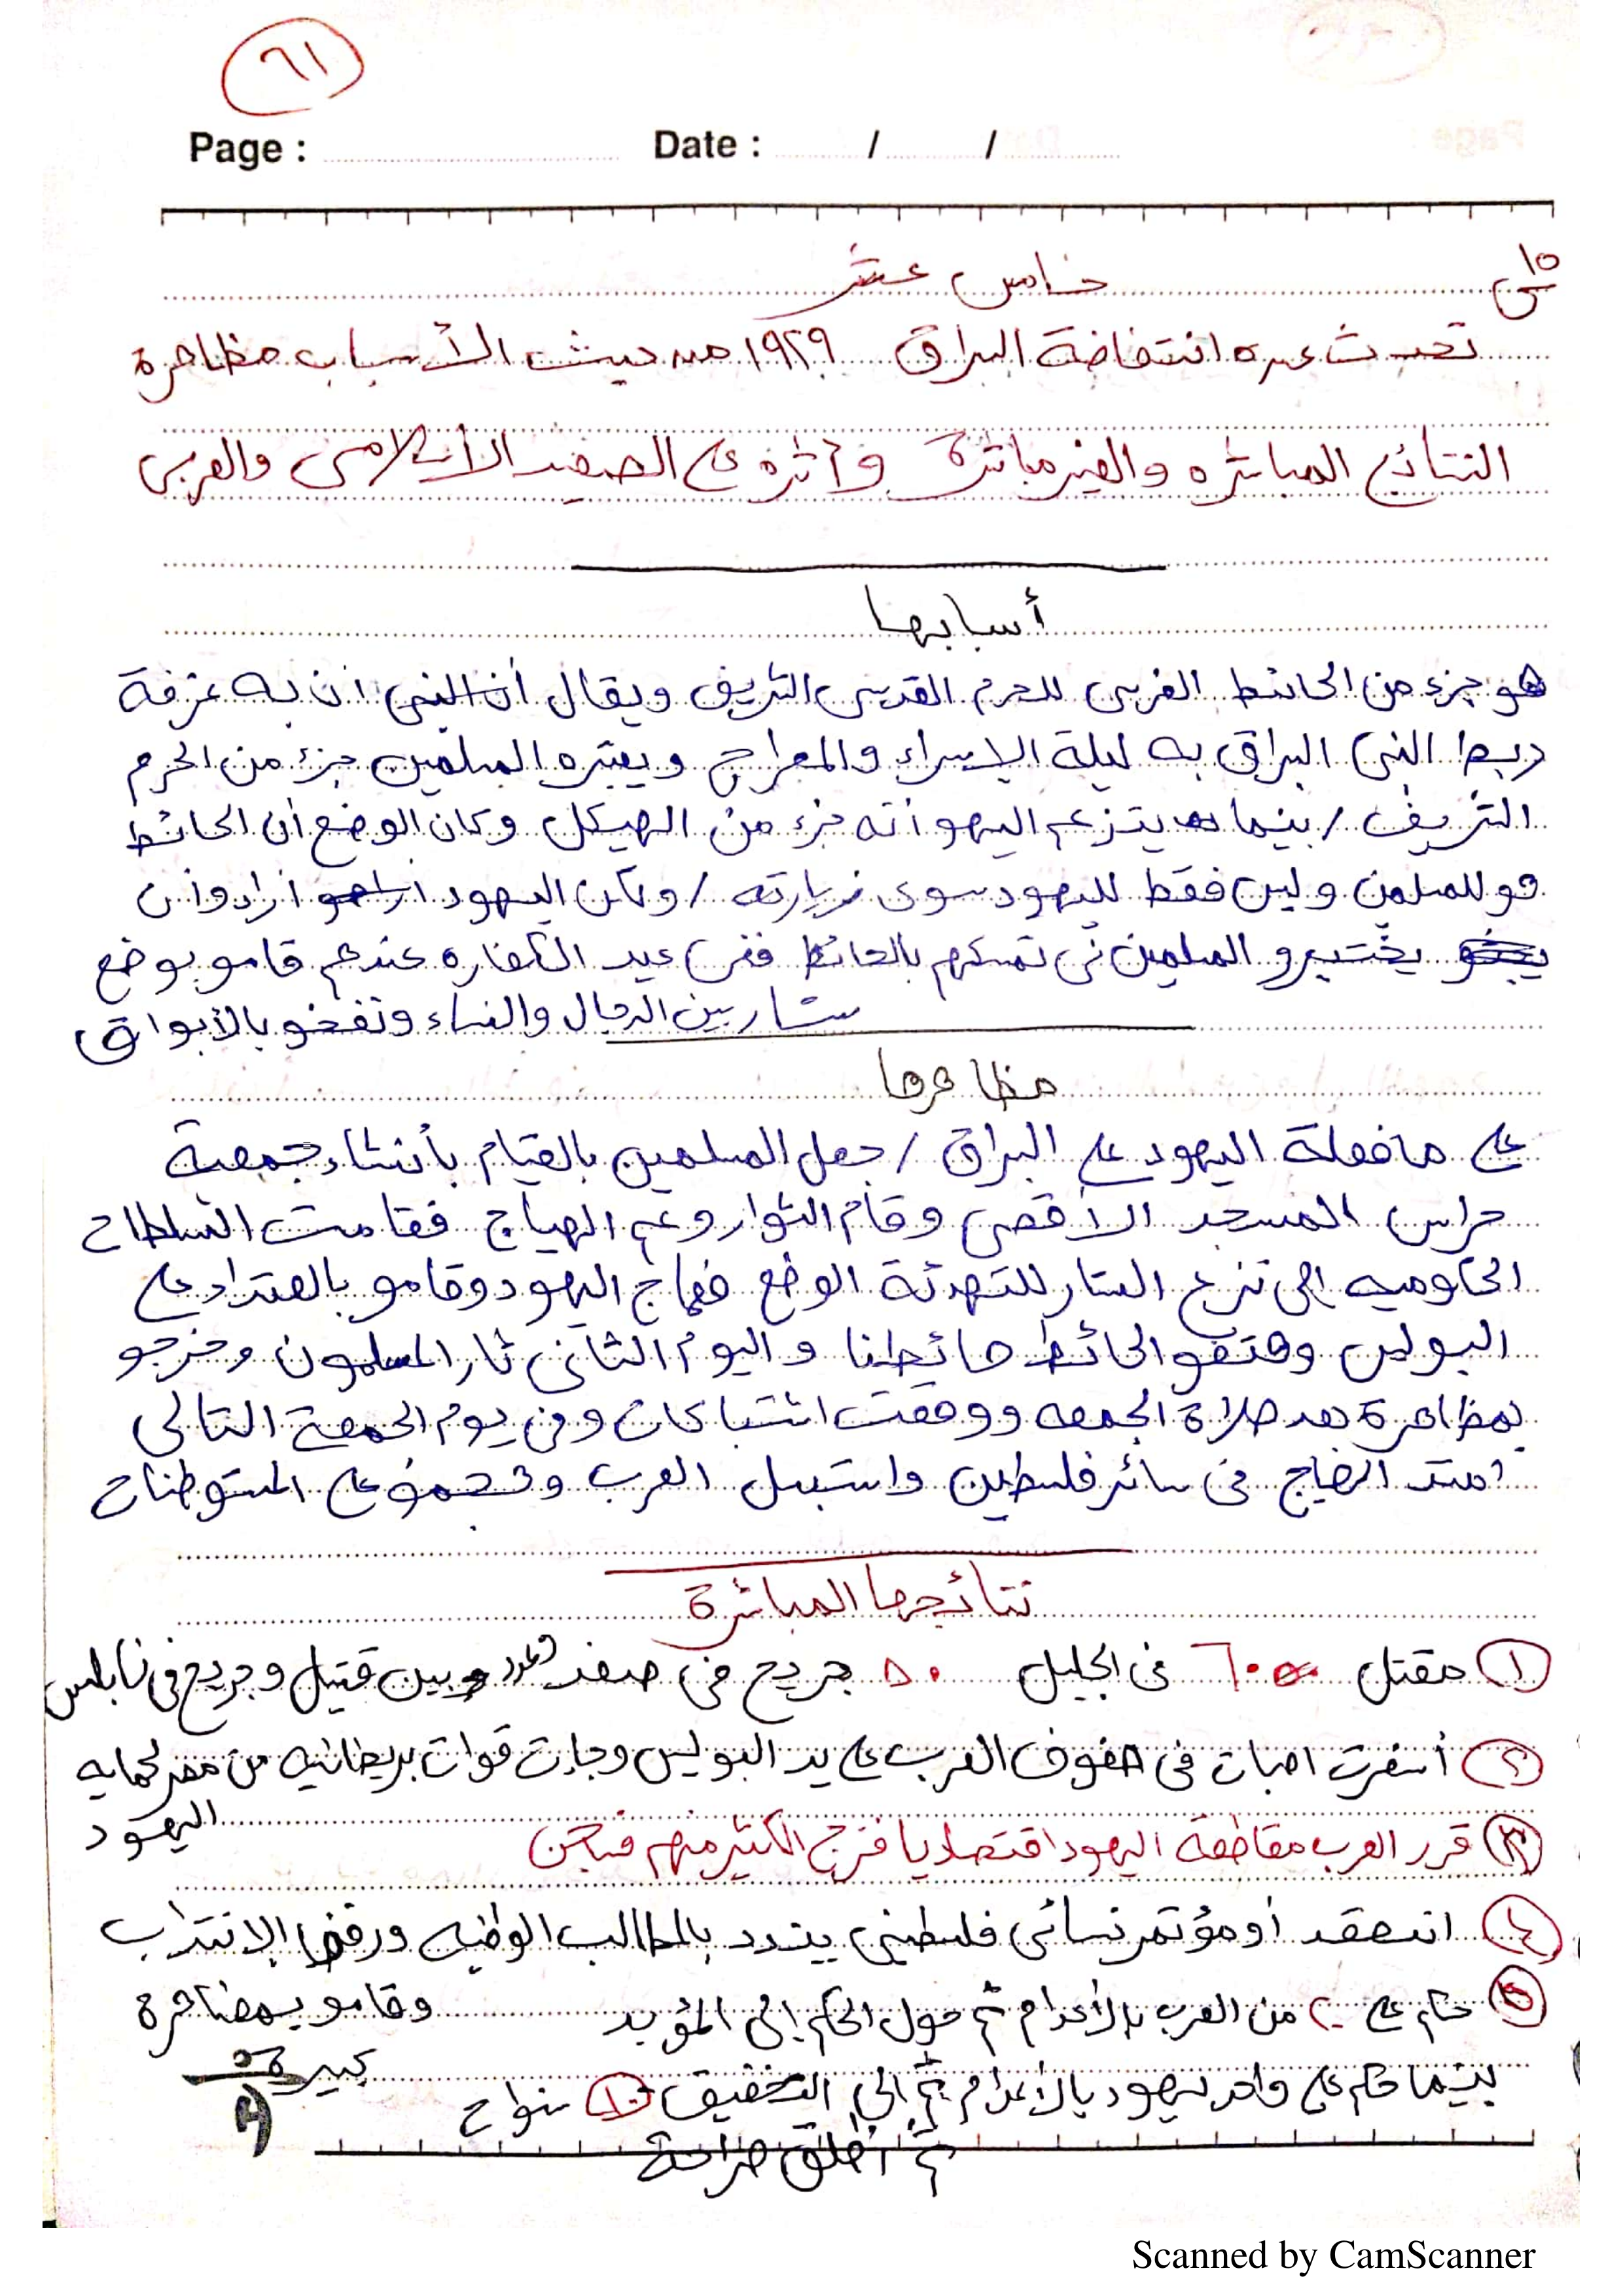 ٦١
Page : Date : / /
س١٥ خامس عشر
تحدث عن انتفاضة البراق ١٩٢٩ من حيث الأسباب مظاهرة
النتائج المباشره والغير مباشرة وآثره على الصعيد الأسلامى والعربى
أسبابها
هو جزء من الحائط الغربى للحرم القدسى الشريف ويقال أن النبى ان به غرفة
ربط النبى البراق به ليلة الإسراء والمعراج ويعتبره المسلمين جزء من الحرم
الشريف / بينما يتزعم اليهو أنه جزء من الهيكل وكان الوضع أن الحائط
هو للمسلمن وليس فقط لليهود سوى زيارته / ولكن اليهود اراهو أرادو أن
يختبرو المسلمين فى تمسكهم بالحائط ففى عيد الكفاره عندهم قامو بوضع
ستار بين الرجال والنساء ونفخو بالأبواق
مظاهرها
على ما فعلة اليهود على البراق / جعل المسلمين بالقيام بأنشاء جمعية
حراس المسجد الأقصى وقام الثوار وعم الهياج فقامت السلطاح
الحاوميه إلى نزع الستار للتهدئة الوضع فهاج اليهود وقامو بالعتداد على
البوليس وهتفو الحائط حائطنا واليوم الثانى ثار المسلمون وخرجو
بمظاهرة بعد صلاة الجمعه ووقعت اشتباكات وفى يوم الجمعة التالى
امتد الهياج فى سائر فلسطين واستبسل العرب وتجمو على المستوطناح
نتائجها المباشرة
١ مقتل ٦٠ فى الجليل ٥٠ جريح فى صفد وبين قتيل وجريح فى نابلس
٢ أسفرت اصبات فى صفوف العرب على يد البوليس وجاءت قوات بريطانيه من مصر لحمايه
اليهود
٣ قرر العرب مقاطعه اليهود اقتصاديا فزج الكثير منهم فىسجن
٤ انعقد أو مؤتمر نسائى فلسطينى يندد بالمطالب الوطنيه ورفض الإنتداب
وقامو بمضاهرة
كبيرة
٥ حكم على ٢٠ من العرب بالأعدام ثم حول الحكم إلى المؤبد
بينما حكم على واحد ليهود بالأعدام ثم إلى التخفيق ١٠ سنواح
ثم أطلق صراحة
Scanned by CamScanner